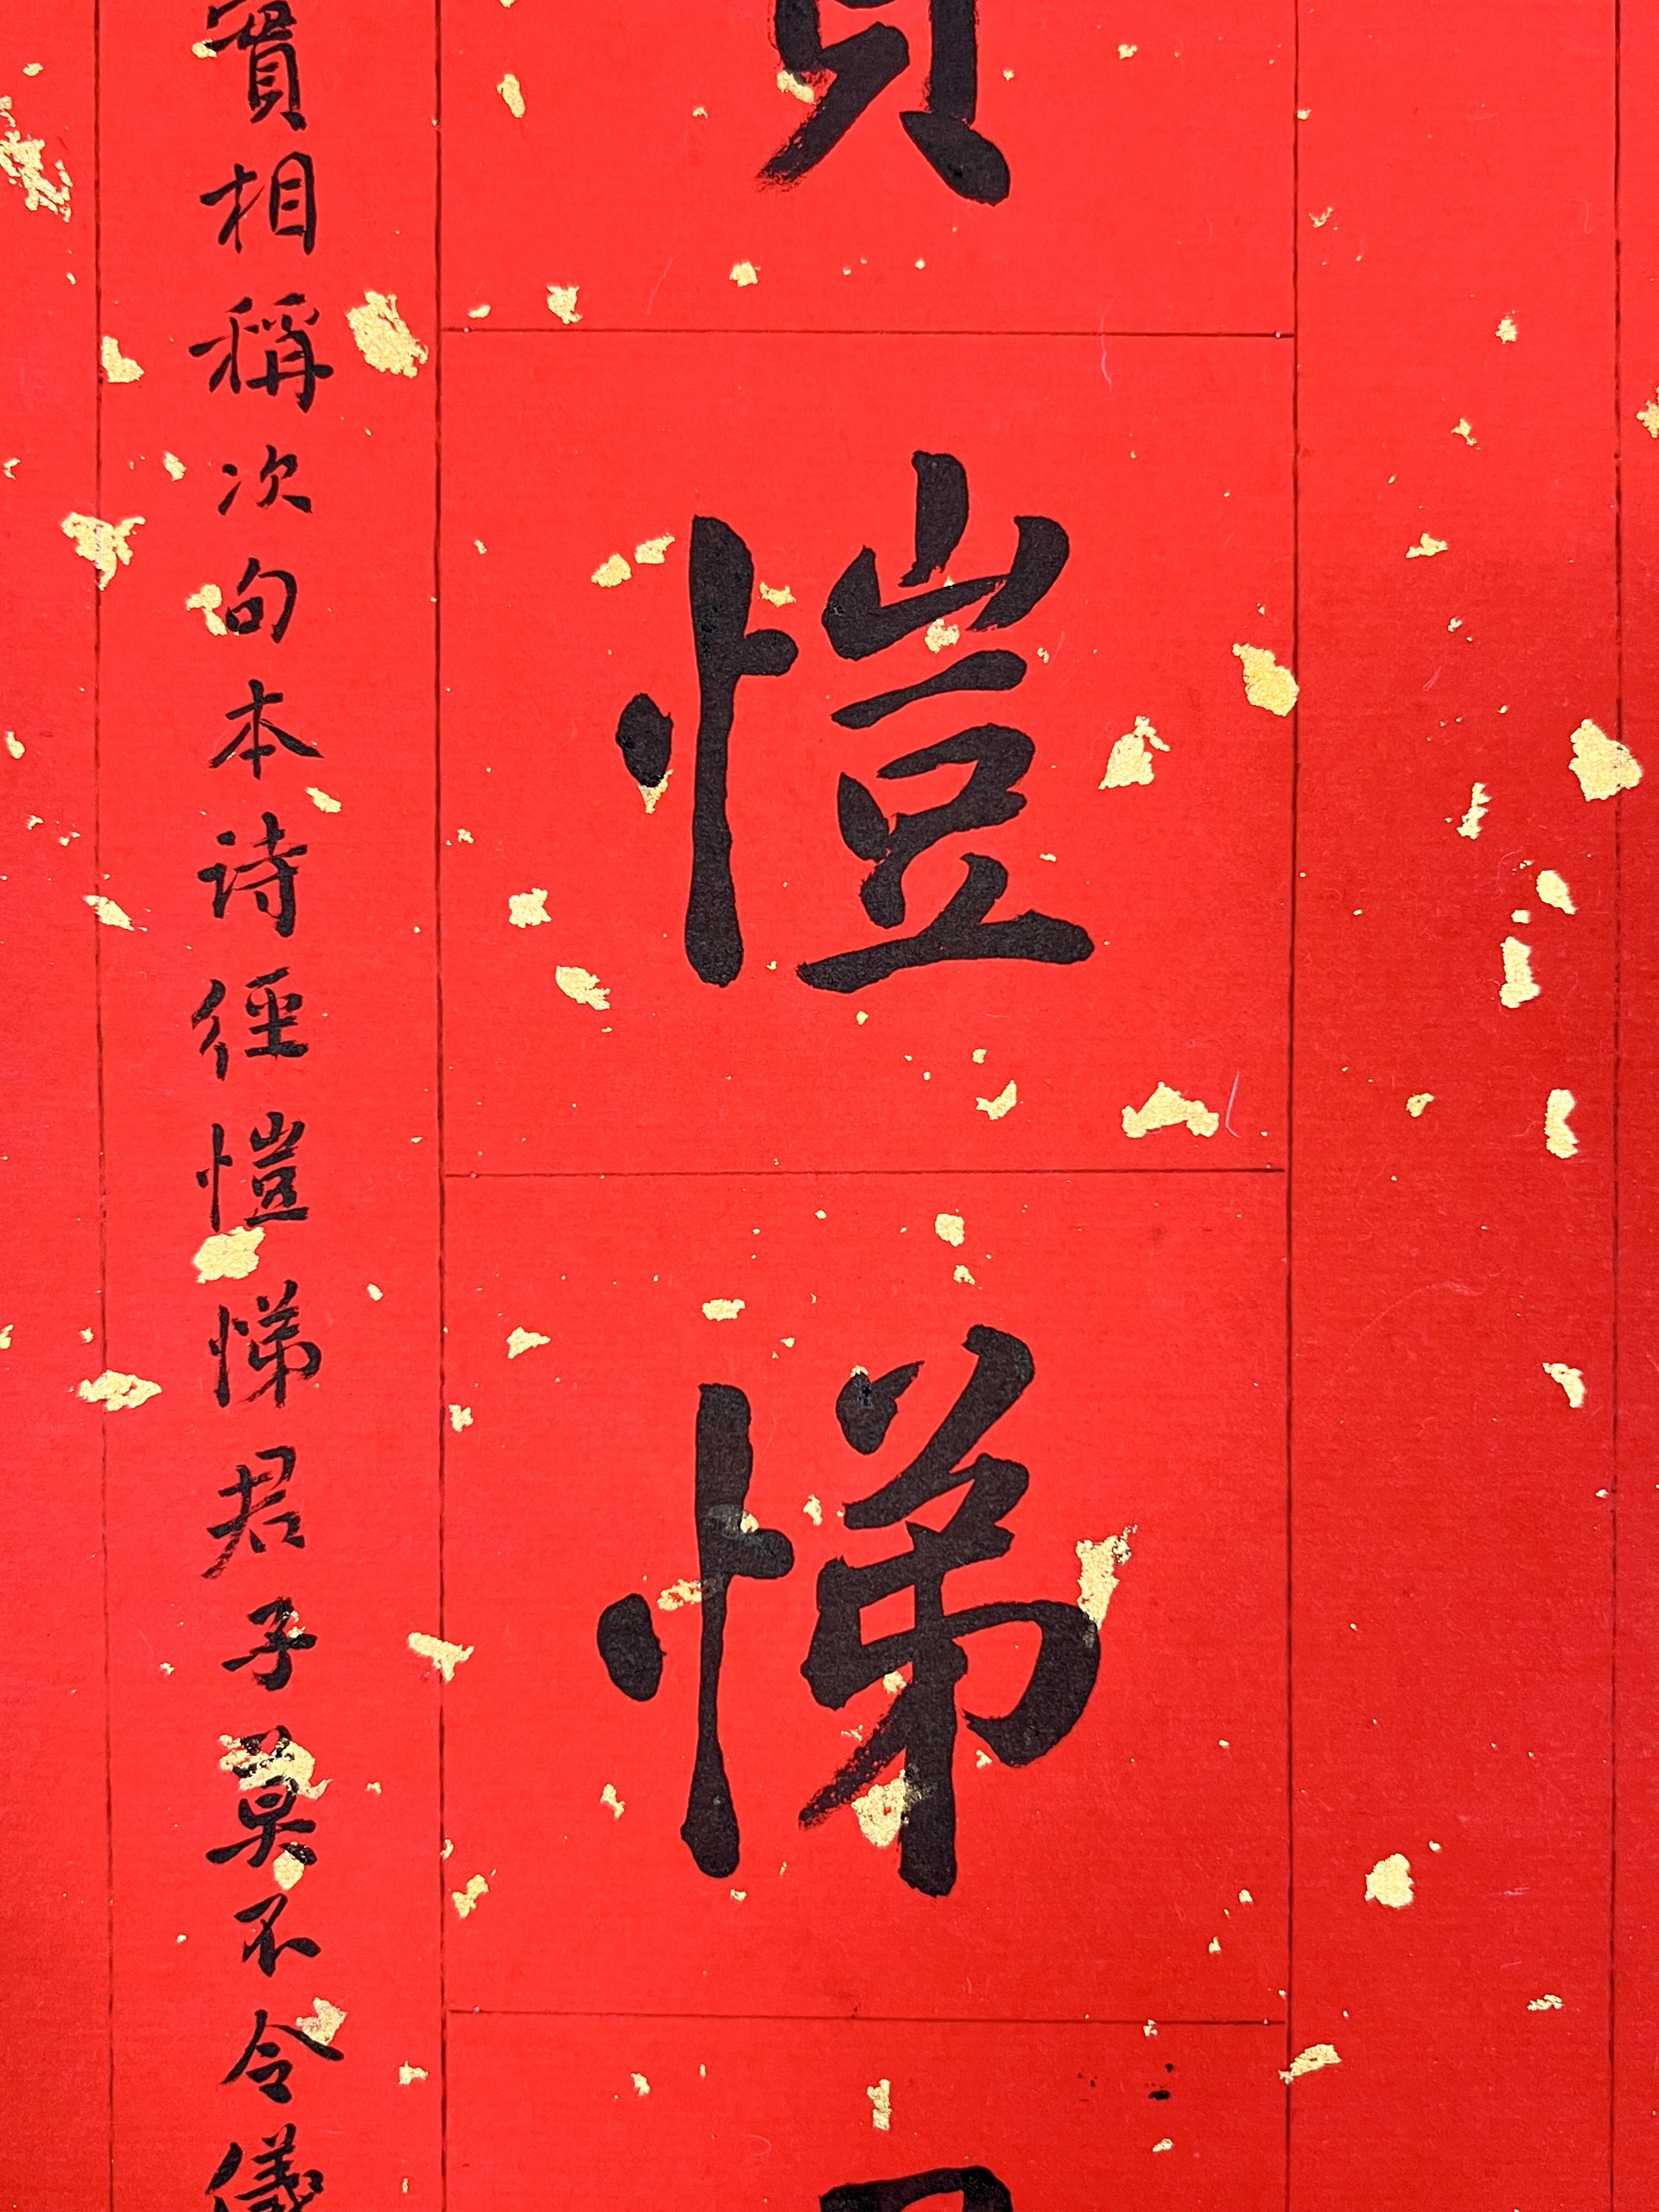 愷悌
實相稱次句本诗径愷悌君子莫不令儀